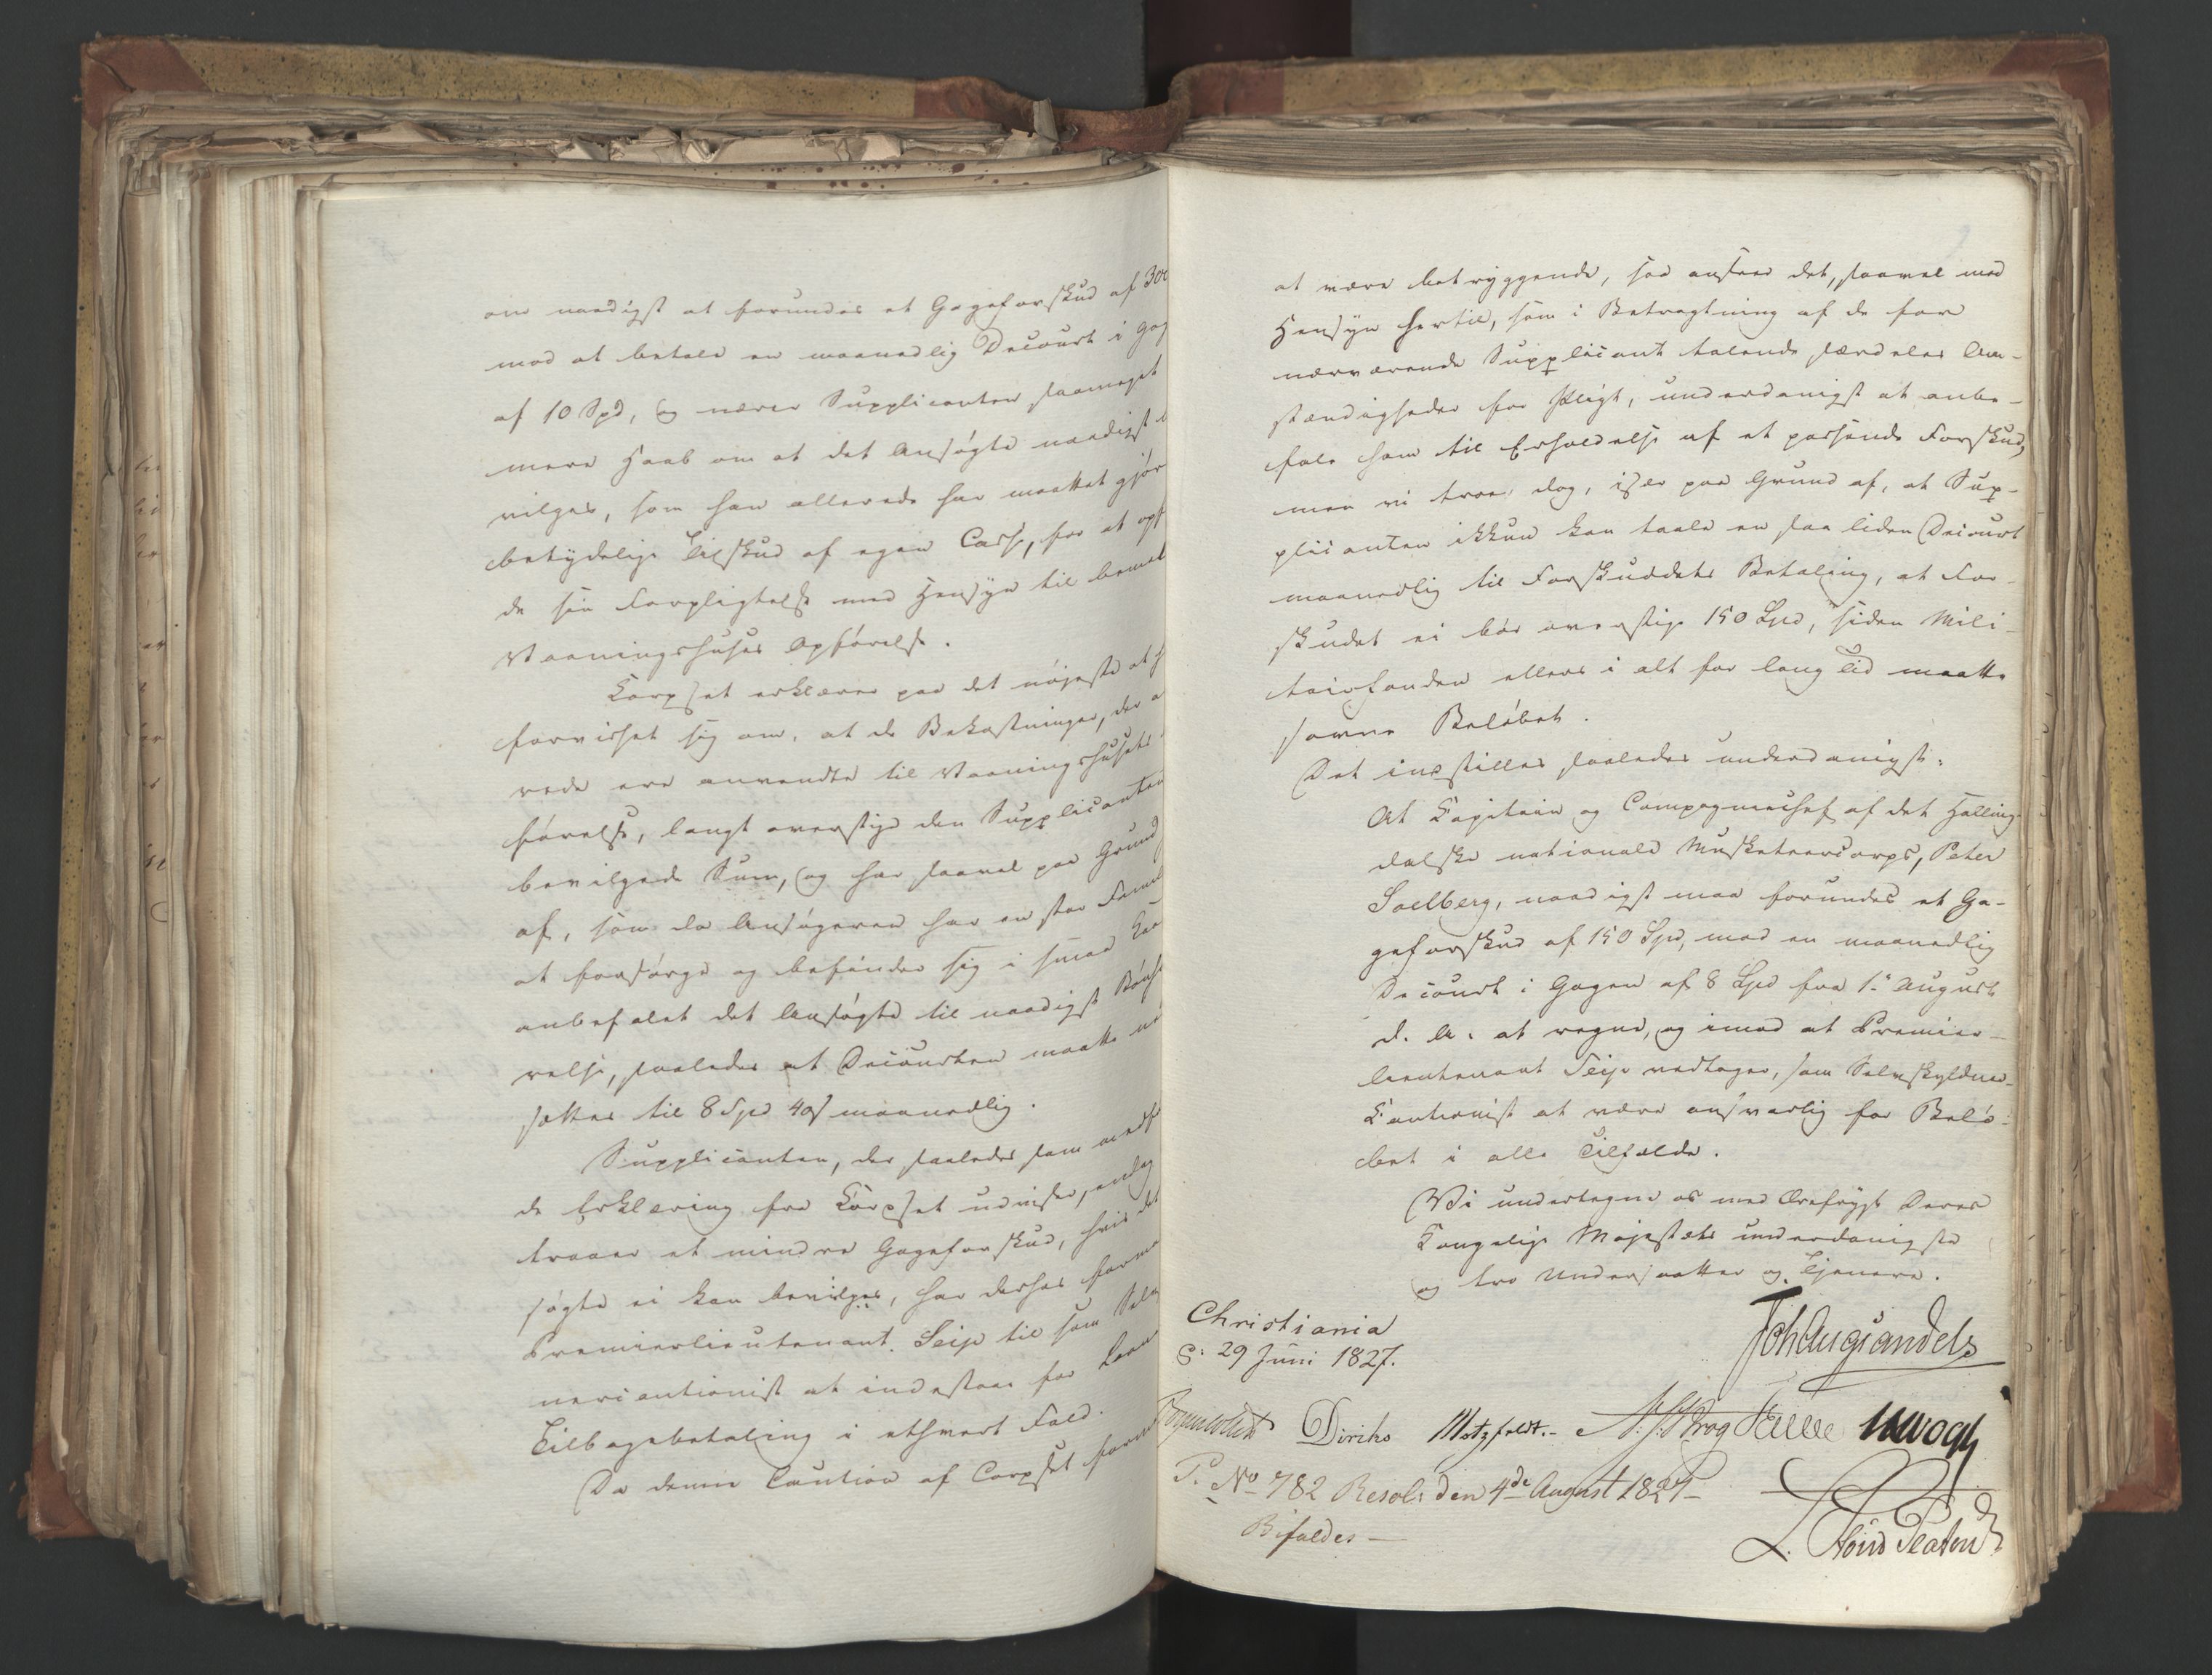 om naadigst at forundes et Gageforskud af 300
mod at betale en maanedlig Decourt i Gag
af 10 Spd, og nærer Supplicanten saameget
mere Haab om at det Ansøgte naadigst b
vilges, som han allerede har maattet gjør
betydelige Tilskud af egen Casse, for at opf
de sin Forpligtelse med Hensyn til bemel
Vaaningshuses Opførelse.
Corpset erklærer paa det nøjeste at h
forvisset sig om, at de Bekostninger, der a
rede ere anvendte til Vaaningshusets
førelse, langt overstige den Supplicanten
bevilgede Sum, og har saavel paa Grund
af, som da Ansøgeren har en stor Famil
at forsørge og befinder sig i smaa Kaar
anbefalet det Ansøgte til naadigst Bønhø
relse, saaledes at Decourten maatte ned
sættes til 8 Spd 40 s maanedlig.
Supplicanten, der saaledes som medfø
de Erklæring fra Corpset udviser, endog
troer et mindre Gageforskud, hvis det
søgte ei kan bevilges, har derhos formaa
Premierlieutenant Seip til som Selv
nercautionist at indestaae for Laan
Tilbagebetaling i ethvert Fald.
Da denne Caution af Corpset forme
at være betryggende, saa ansees det, saavel med
Hensyn hertil, som i Betragtning af de for
nærværende Supplicant talende særdeles Om-
stændigheder for Pligt, underdanigst at anbe-
fale ham til Erholdelse af et passende Forskud,
men vi troe dog, især paa Grund af, at Sup-
plicanten ikkun kan taale en saa liden Decourt
maanedlig til Forskuddets Betaling, at For-
skudet ei bør overstige 150 Spd, siden Mili-
tairfonden ellers i alt for lang Tid maatte
savne Beløbet.
Det indstilles saaledes underdanigst:
At Capitain og Compagniechef af det Halling-
dalske nationale Musketeercorps, Peter
Soelberg, naadigst maa forundes et Ga-
geforskud af 150 Spd, mod en maanedlig
Decourt i Gagen af 8 Spd fra 1. August
d. A. at regne, og imod at Premier-
lieutenant Seip vedtager, som Selvskyldner-
Cautionist at være ansvarlig for Belø-
bet i alle Tilfælde.
Vi undertegne os med Ærefrygt Deres
Kongelige Majestæts underdanigste
og tro Undersaatter og Tjenere.
Christiania
d: 29 Juni 1827.
Joh Aug Sandels
Diriks Motzfeldt. - Krog JHVogt
P. No 782 Resol: den 4de August 1827 -
Bifaldes -
Platou